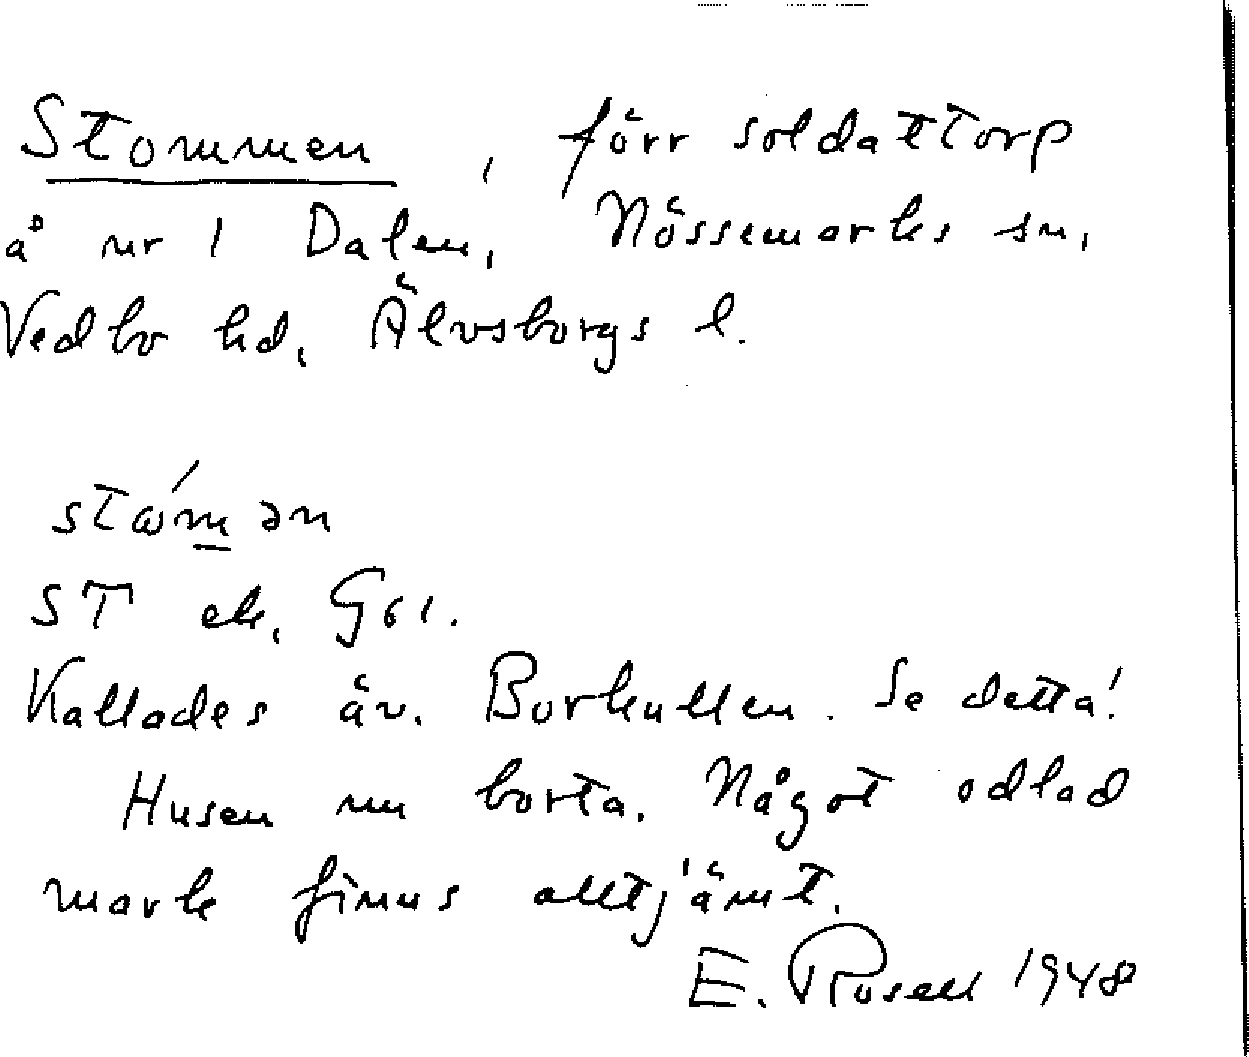 Stommen, förr soldattorp
å nr 1 Dalen, Nössemarks sn,
Vedbo hd, Älvsborgs l.
stɷ́m̲ən
ST ek, G61.
Kallades äv. Borkullen. Se detta!
Husen nu borta. Något odlad
mark finns alltjämt.
E. Rosell 1948